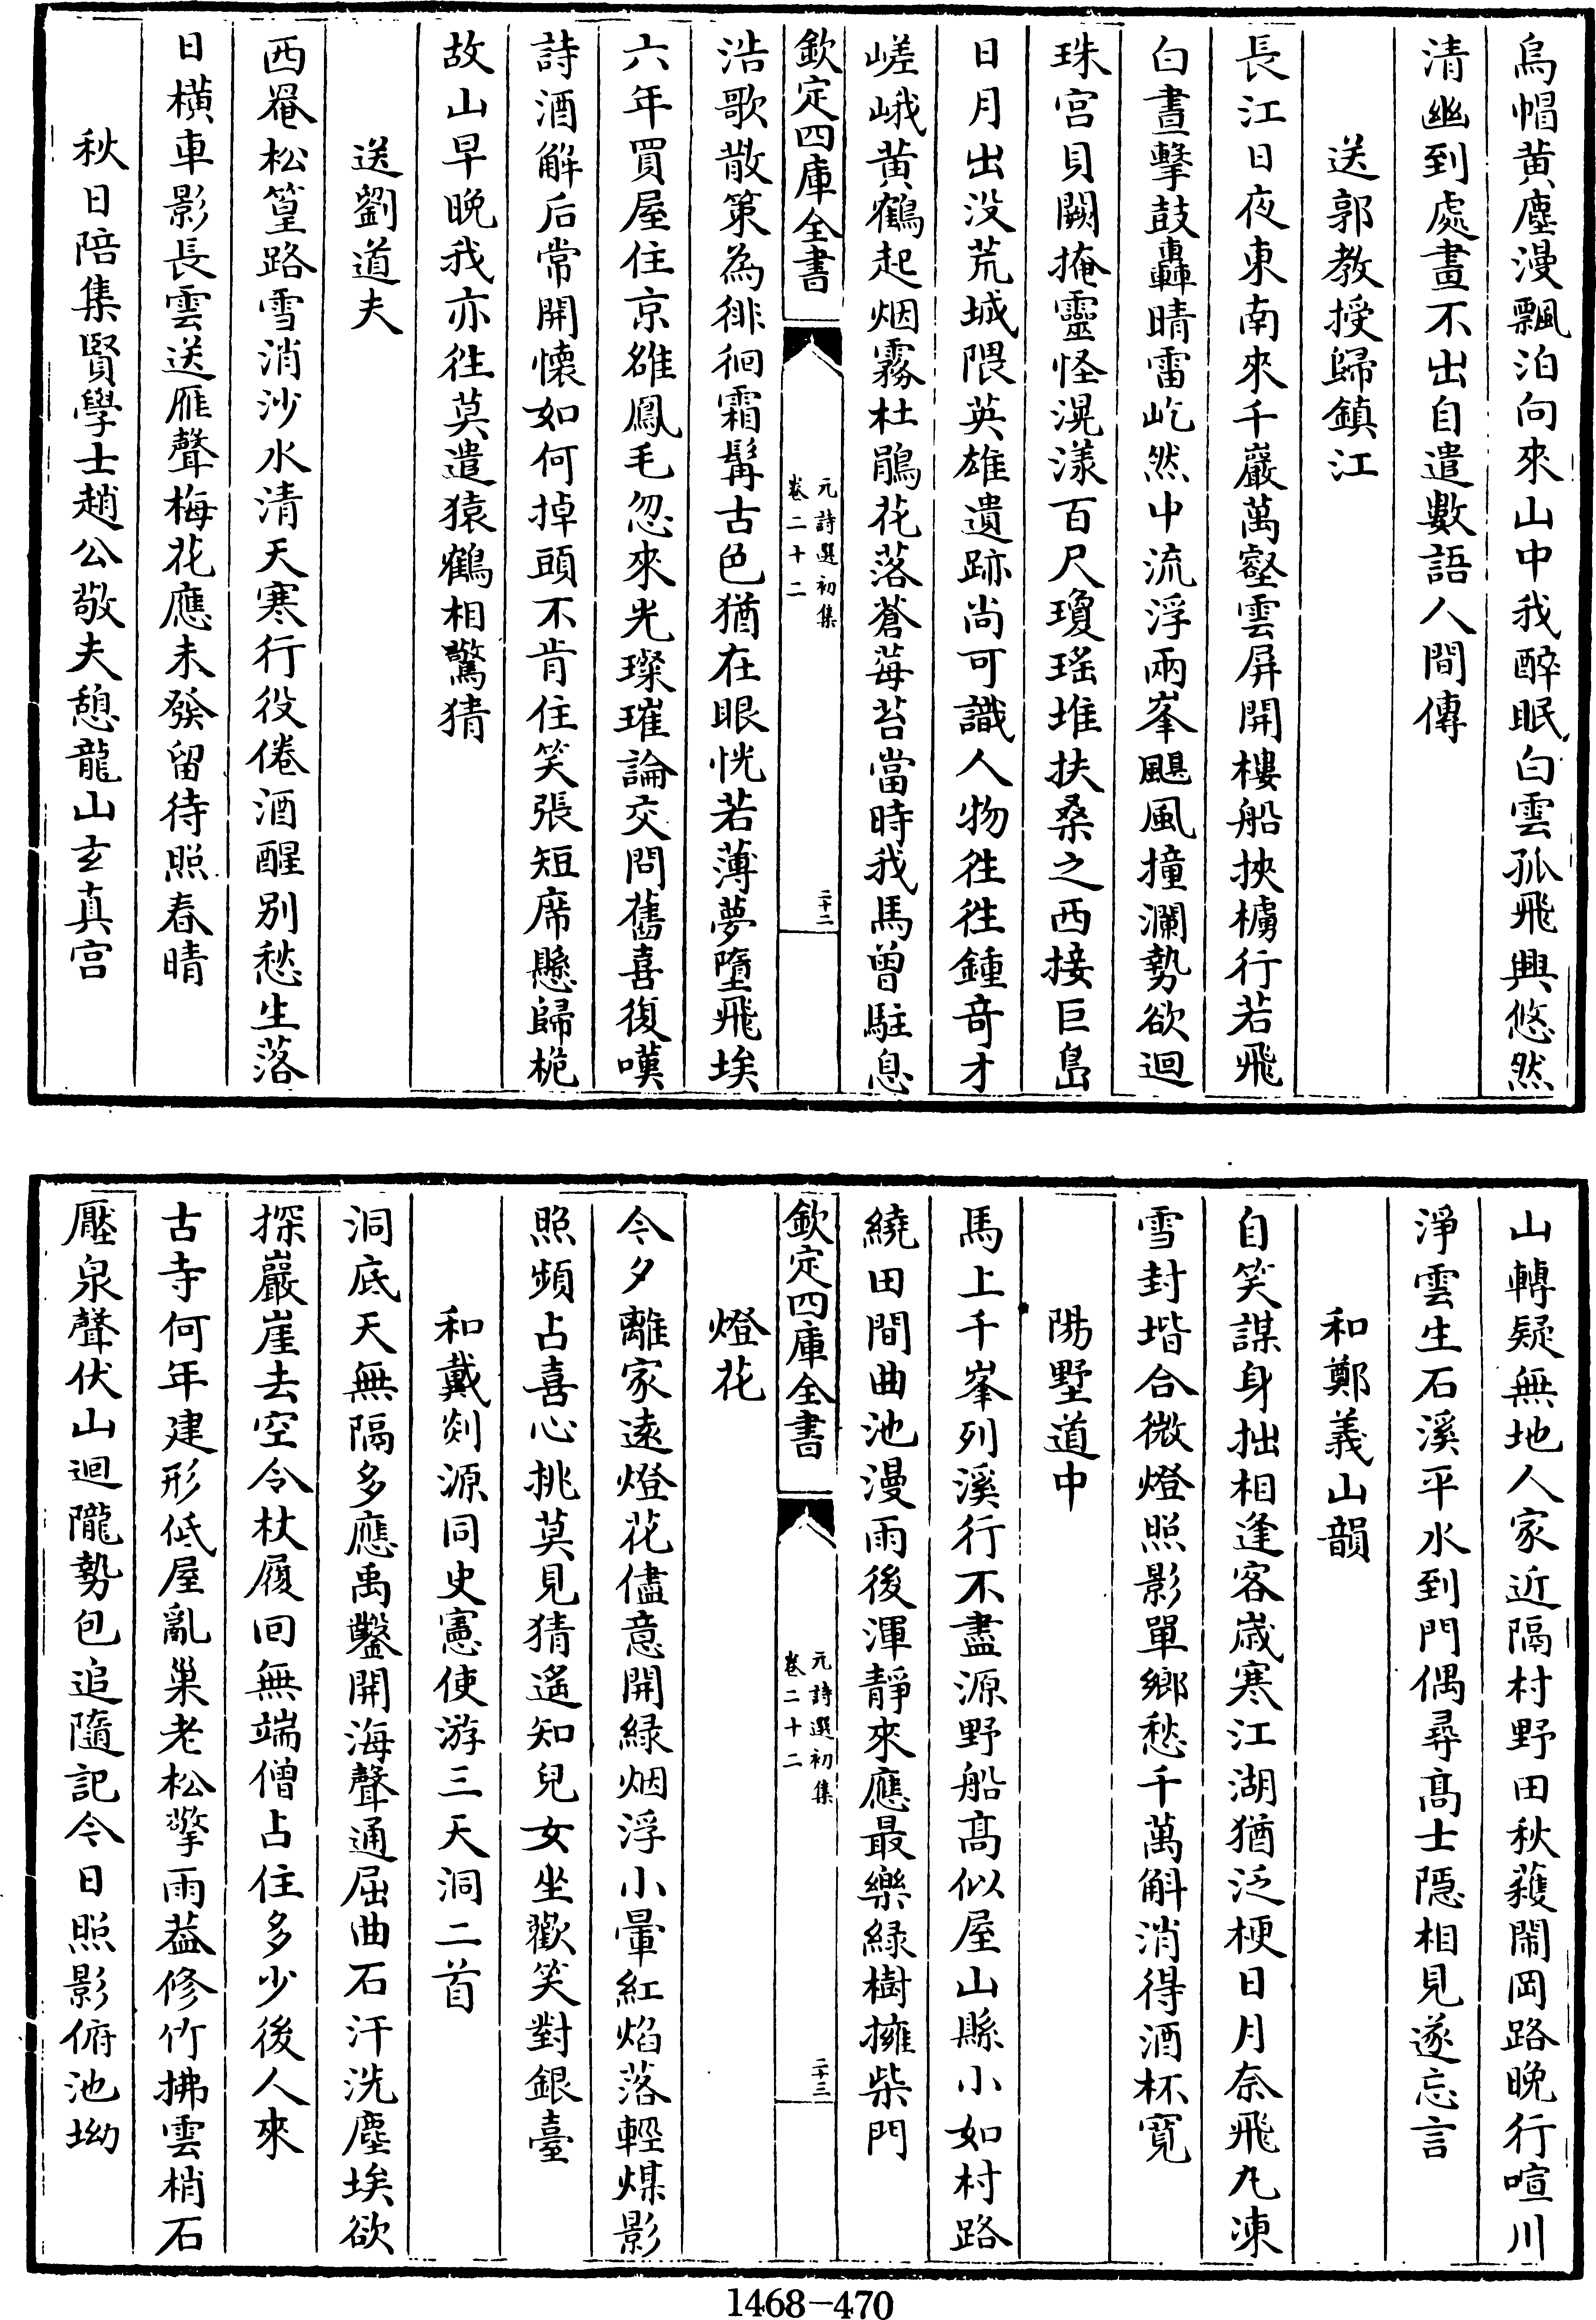 烏帽黄塵漫飄泊向來山中我醉眠白雲孤飛興悠然
清幽到處畫不出自遣數語人間傳
送郭教授歸鎮江
長江日夜東南來千巖萬壑雲屏開樓船挾櫓行若飛
白晝擊鼓轟晴雷屹然中流浮兩峯颶風撞瀾勢欲迴
珠宫貝闕掩靈怪滉漾百尺瓊瑤堆扶桑之西接巨島
日月出没荒城隈英雄遺跡尚可識人物徃徃鍾竒才
嵯峨黄鶴起烟霧杜鵑花落蒼莓苔當時我馬曾駐息
欽定四庫全書
元詩選初集
卷二十二
二十二
浩歌散策為徘徊霜髯古色猶在眼恍若薄夢墮飛埃
六年買屋住京雒鳳毛忽來光璨璀論交問舊喜復嘆
詩酒解后常開懐如何掉頭不肯住笑張短席懸歸桅
故山早晚我亦徃莫遣猿鶴相驚猜
送劉道夫
西菴松篁路雪消沙水清天寒行役倦酒醒别愁生落
日横車影長雲送雁聲梅花應未發留待照春晴
秋日陪集賢學士趙公敬夫憩龍山玄真宫
山轉疑無地人家近隔村野田秋穫閙岡路晚行喧川
淨雲生石溪平水到門偶尋髙士隱相見遂忘言
和鄭義山韻
自笑謀身拙相逢客歲寒江湖猶泛梗日月奈飛丸凍
雪封堦合微燈照影單鄉愁千萬斛消得酒杯寛
陽墅道中
馬上千峯列溪行不盡源野船髙似屋山縣小如村路
繞田間曲池漫雨後渾靜來應最樂緑樹擁柴門
欽定四庫全書
元詩選初集
卷二十二
二十三
燈花
今夕離家遠燈花儘意開緑烟浮小暈紅焰落輕煤影
照頻占喜心挑莫見猜遙知兒女坐歡笑對銀臺
和戴剡源同史憲使游三天洞二首
洞底天無隔多應禹鑿開海聲通屈曲石汗洗塵埃欲
探巖崖去空令杖履回無端僧占住多少後人來
古寺何年建形低屋亂巢老松擎雨葢修竹拂雲梢石
壓泉聲伏山迴隴勢包追隨記今日照影俯池坳
1468-470